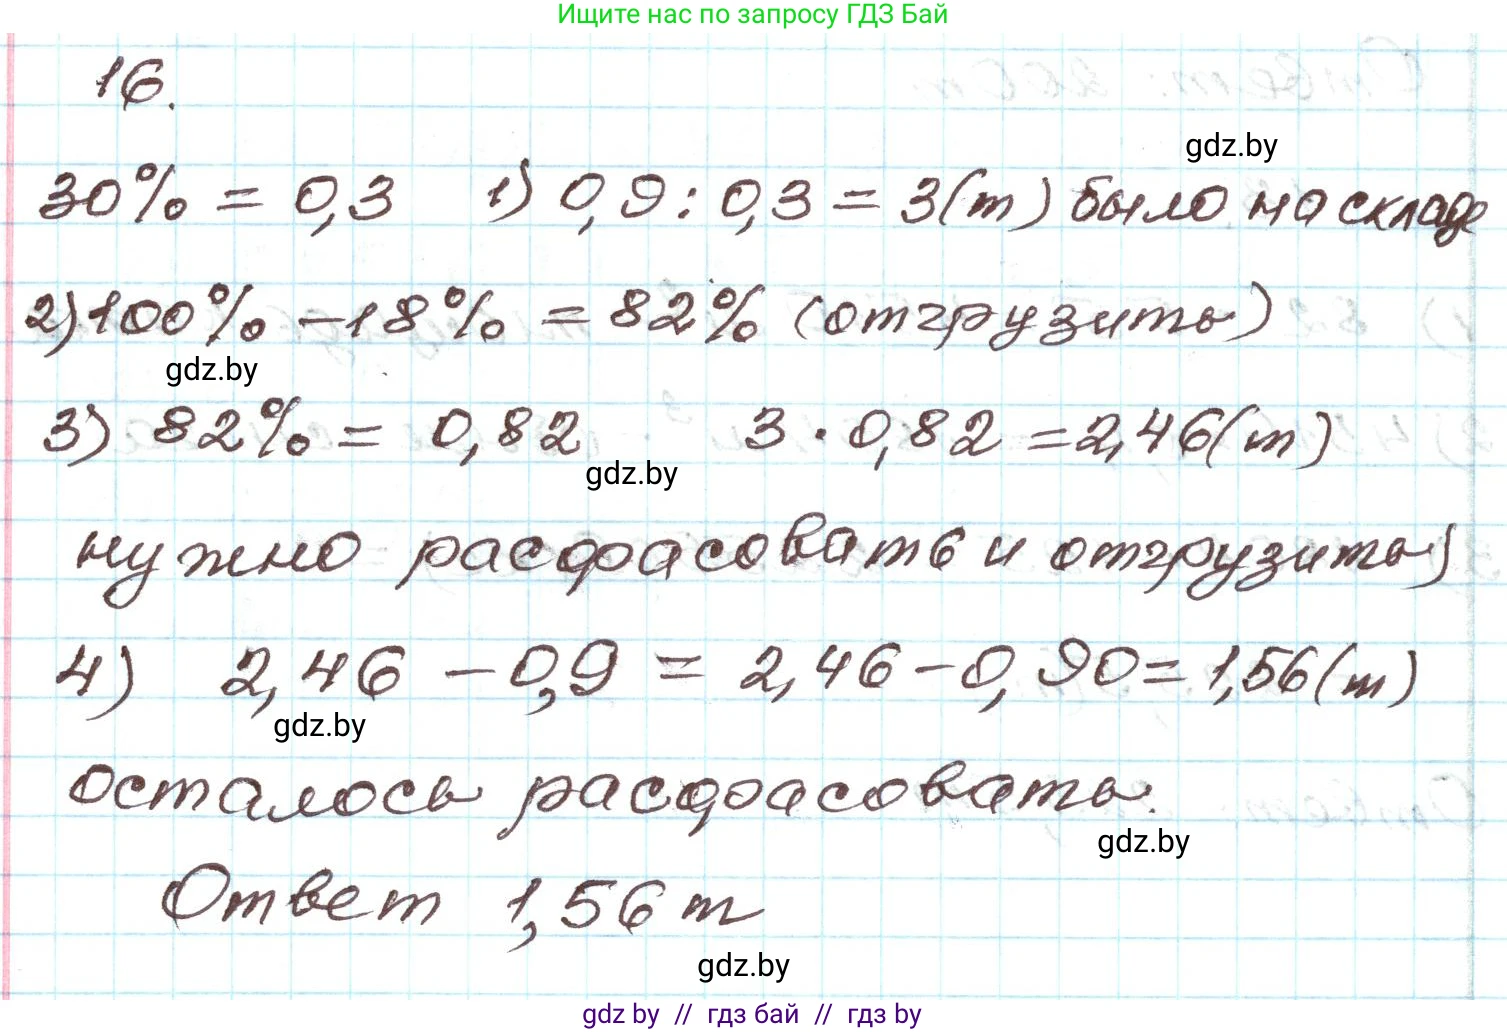 Ищите нас по запросу ГДЗ Бай
16.
gdz.by
30% = 0,3 1) 0,9 : 0,3 = 3(т) было на складе
2) 100% - 18% = 82% (отгрузить)
gdz.by
3) 82% = 0,82 3 · 0,82 = 2,46(т)
gdz.by
нужно расфасовать и отгрузить)
4) 2,46 - 0,9 = 2,46 - 0,90 = 1,56(т)
gdz.by
осталось расфасовать.
gdz.by
Ответ 1,56 т
gdz.by
gdz by // гдз бай // гдз by